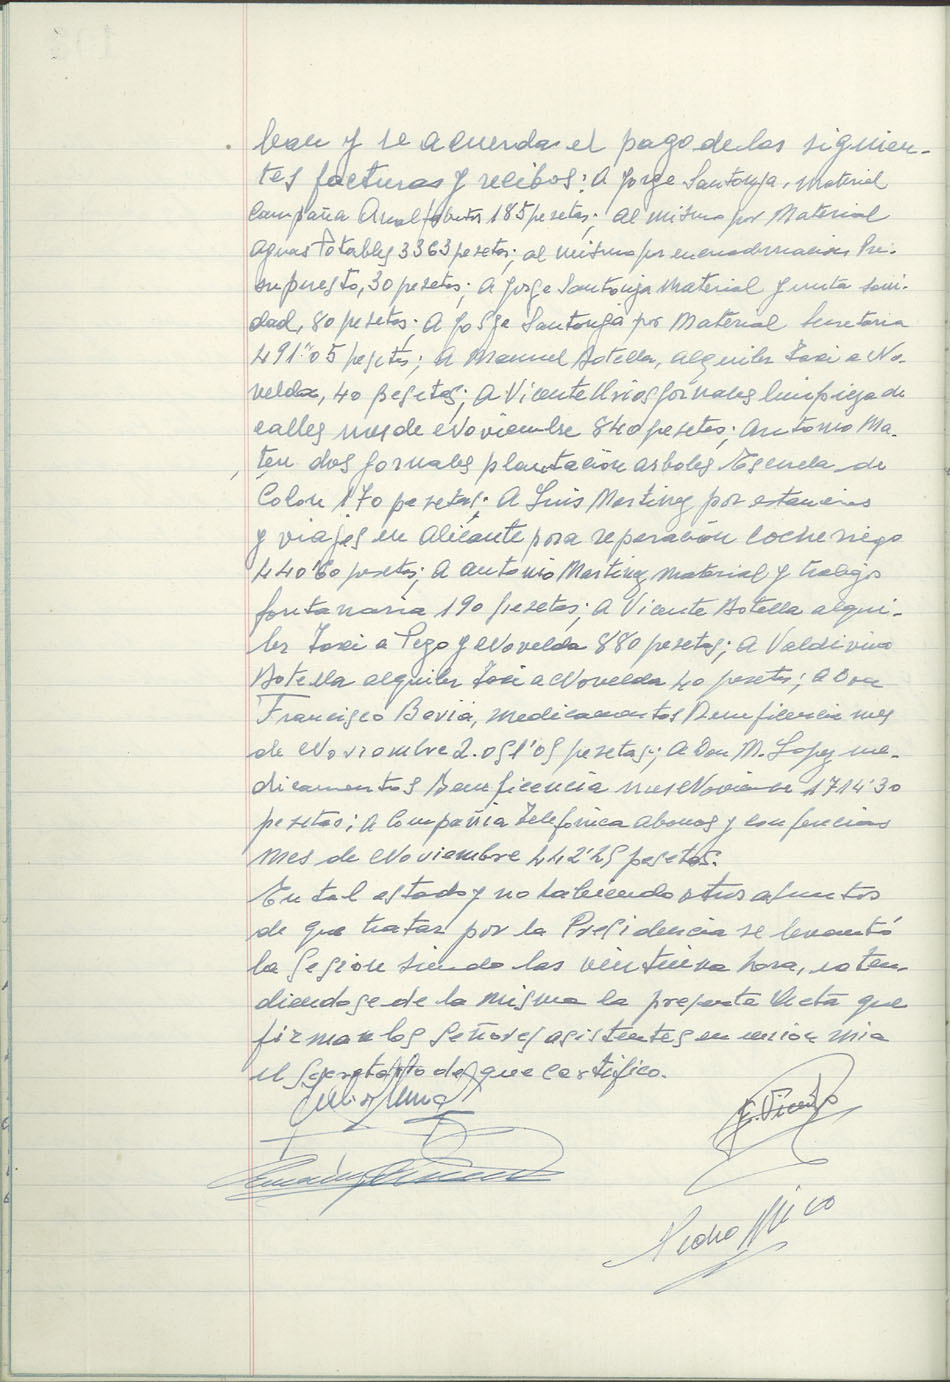 ban y se acuerda el pago de las siguien-
tes facturas y recibos: A Jorge Santonja, material
Campaña Analfabetos 185 pesetas; al mismo por Material
aguas Potables 3363 pesetas; al mismo por encuadernacion Pre-
supuesto, 30 pesetas; A Jorge Santonja Material Junta Sani-
dad, 80 pesetas; A Jorge Santonja por Material Secretaria
491'05 pesetas; A Manuel Botella, alquiler Taxi a No-
velda, 40 pesetas; A Vicente Urios jornales limpieza de
calles mes de Noviembre 840 pesetas; Antonio Ma-
dos jornales plantación arboles Escuela de
Colon 170 pesetas; A Luis Martinez por estancias
y viajes en Alicante para reparación coche riego
440'60 pesetas; A Antonio Martinez material y trabajos
fontanaria 190 pesetas; A Vicente Botella alqui-
ler Taxi a Pego y Novelda 880 pesetas; A Valdivino
Botella alquiler Taxi a Novelda 40 pesetas; A Don
Francisco Beviá, medicamentos Beneficencia mes
de Noviembre 2.051'05 pesetas; A Don M. Lopez me-
dicamentos Beneficencia mes Noviembre 1714'30
pesetas; A Compañia Telefónica abonos y conferencias
mes de Noviembre 442'25 pesetas.
En tal estado y no habiendo otros asuntos
de que tratar por la Presidencia se levantó
la Sesion siendo las veintiuna hora, exten-
diendose de la misma la presente Acta que
firman los Señores asistentes en unión mia
el Secretario de que certifico.
Pedro Micó